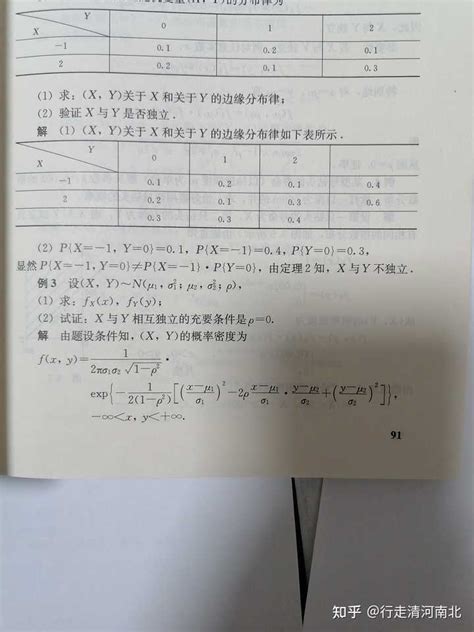 的分布律为
X Y 0 1 2
-1 0.1 0.2 0.1
2 0.2 0.1 0.3
(1) 求：(X, Y)关于 X 和关于 Y 的边缘分布律；
(2) 验证 X 与 Y 是否独立．
解 (1) (X, Y)关于 X 和关于 Y 的边缘分布律如下表所示．
X Y 0 1 2
-1 0.1 0.2 0.1 0.4
2 0.2 0.1 0.3 0.6
0.3 0.3 0.4
(2) P{X=-1, Y=0}=0.1, P{X=-1}=0.4, P{Y=0}=0.3,
显然 P{X=-1, Y=0}≠P{X=-1}·P{Y=0}, 由定理 2 知, X 与 Y 不独立．
例 3 设(X, Y)~N(μ₁, σ₁²; μ₂, σ₂²; ρ),
(1) 求: f_X(x), f_Y(y);
(2) 试证: X 与 Y 相互独立的充要条件是 ρ=0.
解 由题设条件知, (X, Y)的概率密度为
f(x, y)=1/(2πσ₁σ₂√(1-ρ²))·
exp{-1/(2(1-ρ²))[((x-μ₁)/σ₁)²-2ρ (x-μ₁)/σ₁·(y-μ₂)/σ₂+((y-μ₂)/σ₂)²]},
-∞<x, y<+∞.
91
知乎 @行走清河南北